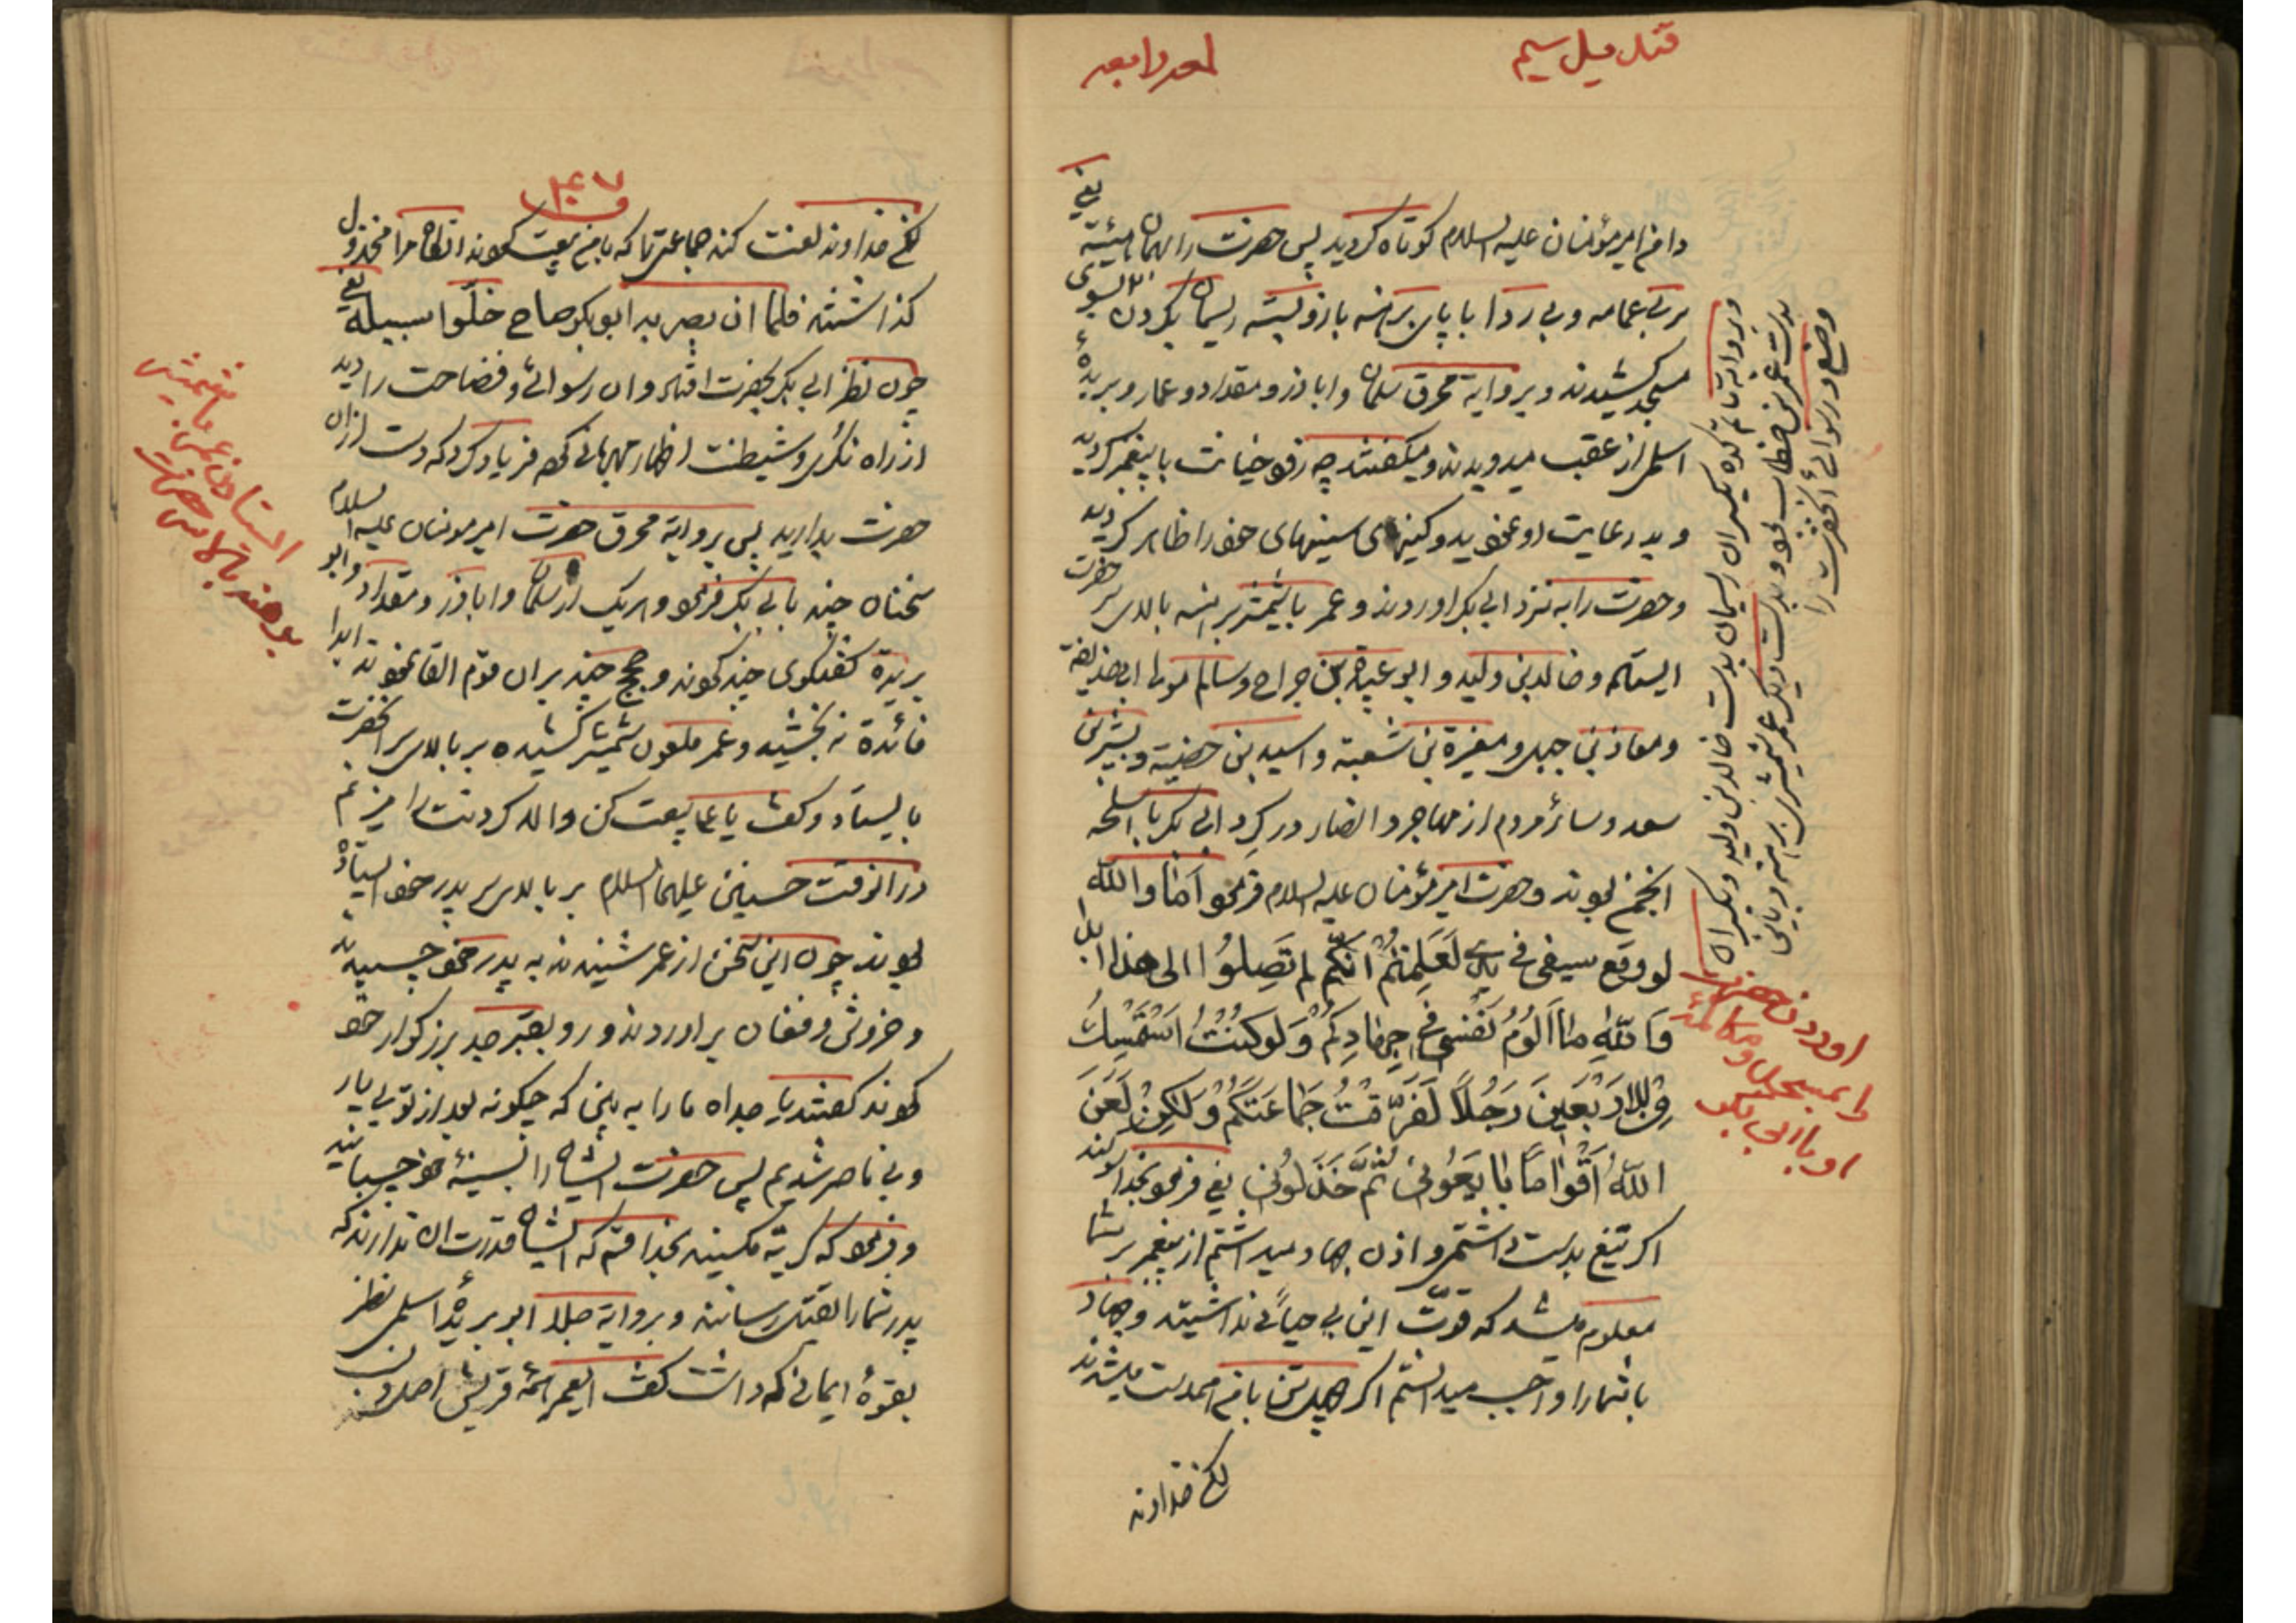 قندیل سیم
دامن امیر مؤمنان علیه السلام کوتاه کردید پس حضرت را بهمان هیئته یعنی
سر بی عمامه و بی ردا با پای برهنه بازو بسته ریسمان بگردن بسوی
مسجد کشیدند و بروایة محرق سلمان و اباذر و مقداد و عمار و بریدهٔ
اسلمی از عقب میدویدند و میگفتند چه زود خیانت با پیغمبر کردید
و بدر عایت او نمودید و کینهای سینهای خود را ظاهر کردید
و حضرت را به نزد ابی بکر اوردند و عمر با شمشیر برهنه بالای سر حضرت
ایستاده و خالد بن ولید و ابو عبیدة بن جراح و سالم مولا ابی حذیفة
و معاذ بن جبل و مغیرة بن شعبة و اسید بن حضیر و بشیر بن
سعد و سائر مردم از مهاجر و انصار در گرد ابی بکر با اسلحه
انجمن بودند و حضرت امیر مؤمنان علیه السلام فرمود اما والله
لو وقع سیفی فی یدی لعلمتم انکم لم تصلوا الی هذا ابدا
وَاللهِ ما اَلُومُ نَفْسی فی جِهادِکُمْ وَلَو کُنْتُ اسْتَمْسِکُ
اَرْبَعینَ رَجُلاً لَفَرَّقْتُ جَماعَتَکُمْ وَلکِنْ لَعَنَ
اللهُ اَقْواماً بایَعُونی ثُمَّ خَذَلُونی یعنی فرمود بخدا سوگند
اکر تیغ بدست داشتم و اذن جهاد میداشتم از پیغمبر بر شما
معلوم میشد که قوّت این بی حیائی نداشتید و جهاد
با شما را واجب میدانستم اکر چهل تن با من همدست میشدند
لکن خداوند
و بروایة خاتم کده یکسر ان ریسمان بدست خالد بن ولید و یکسر ان
بدست عمر بن خطاب بود و بدست دیگر عمر شمشیر برهنه و باین
وضع و رسوائی آنحضرت را
اوردن حضرت
را بمسجد و مکالمهٔ
او با ابی بکر
۱۰۴۷
لکن خداوند لعنت کند جماعتی را که با من بیعت نمودند انگاه مرا مخذول
گذاشتند فلما ان بصر به ابوبکر صاح خلّوا سبیله یعنی
چون نظر ابی بکر بحضرت افتاد و ان رسوائی و فضاحت را دید
از راه نکری و شیطنت اظهار مهربانی نمود فریاد کرد که دست ازان
حضرت بدارید پس بروایة محرق حضرت امیر مومنان علیه السلام
سخنان چند بابی بکر فرمود و هر یک از سلمان و اباذر و مقداد و ابو
بریدة گفتگوی چند نمودند و حجج چند بران قوم القا نمودند ابدا
فائدة نه بخشید و عمر ملعون شمشیر کشیده بر بالای سر انحضرت
بایستاد و گفت یا علی بیعت کن والا گردنت را میزنم
درانوقت حسنین علیهما السلام بر بالای سر پدر خود ایستاده
بودند چون این سخن از عمر شنیدند به پدر خود چسبیدند
و خروش و فغان براوردند و رو بقبر جد بزرگوار خود
نمودند گفتند یا جداه ما را به بین که چگونه بعد از تو بی یار
و بی ناصر شدیم پس حضرت ایشان را بسینهٔ خود چسبانید
و فرمود که گریه مکنید بخدا قسم که ایشان قدرت ان ندارند که
پدر شما را بقتل رسانند و بروایة جلا ابو بریدهٔ اسلمی نظر
بقوهٔ ایمانی که داشت گفت ایعمر همهٔ قریش اصل و نسب
ایستادن عمر با شمشیر
برهنه بالای سر حضرت